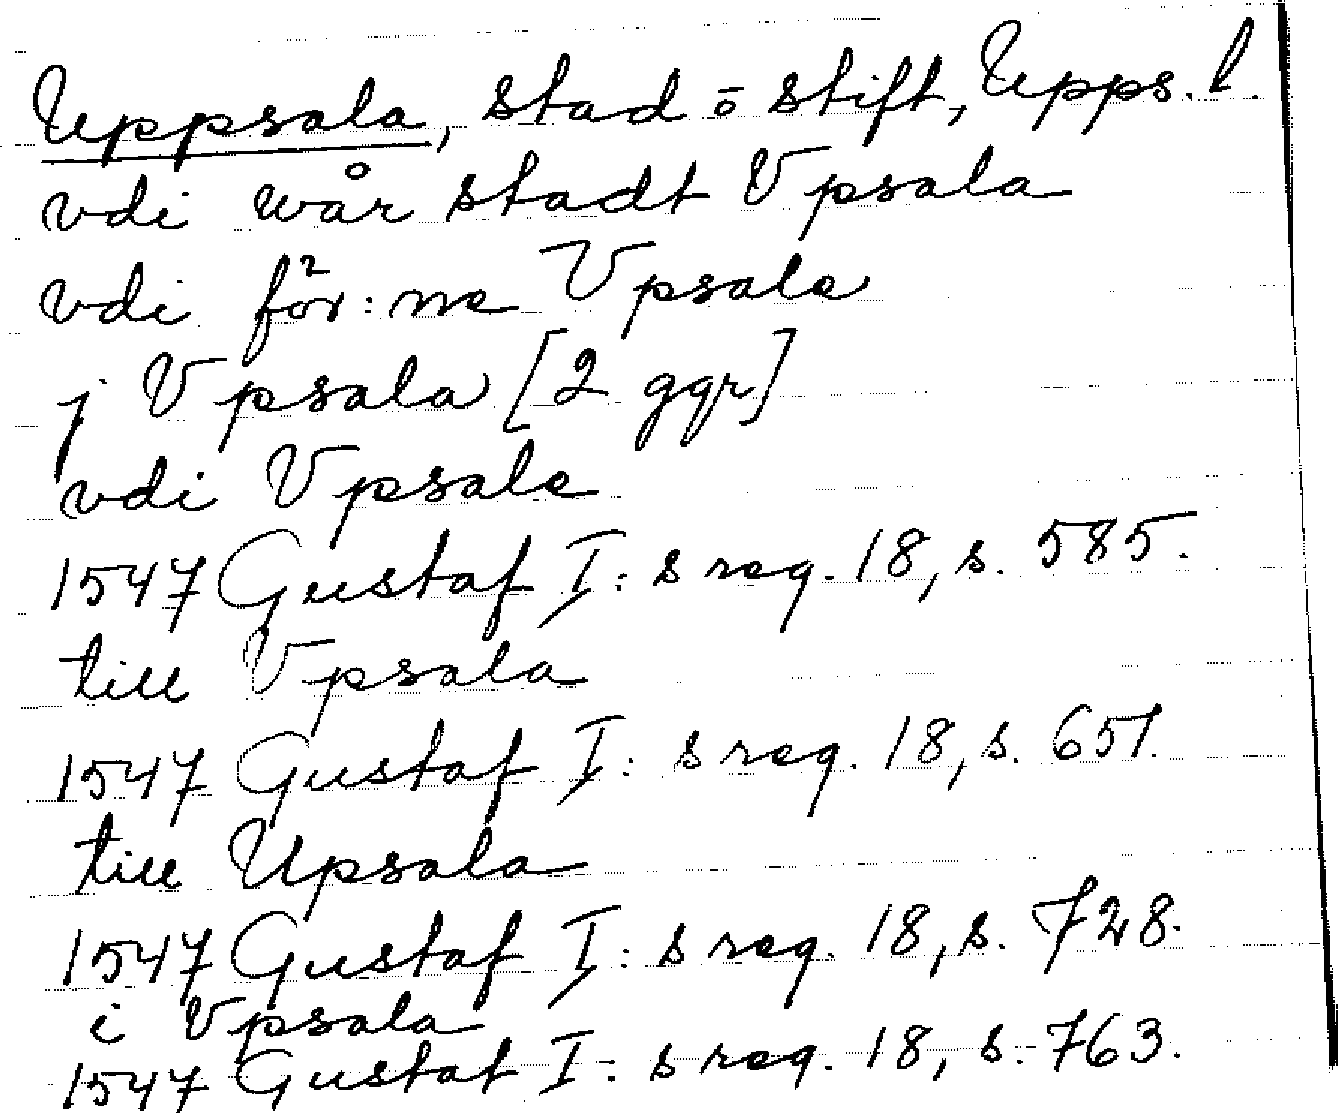 Uppsala, stad o stift, Upps. l.
vdi wår stadt Vpsala
vdi för:ne Vpsala
j Vpsala [2 ggr]
vdi Vpsala
1547 Gustaf I:s reg. 18, s. 585.
till Vpsala
1547 Gustaf I:s reg. 18, s. 651.
till Upsala
1547 Gustaf I:s reg. 18, s. 728.
i Vpsala
1547 Gustaf I:s reg. 18, s. 763.